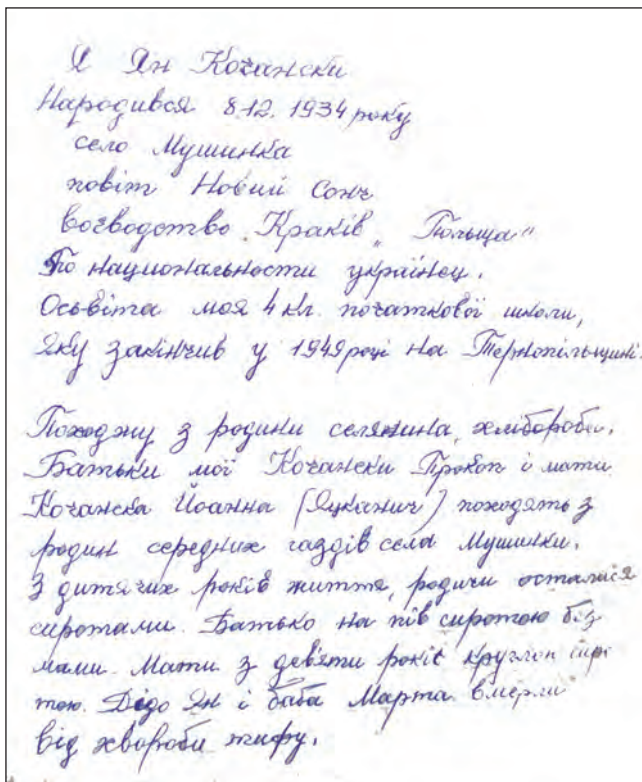 Я Ян Кочански
Народився 8.12.1934 року
село Мушинка
повіт Новий Сонч
воєводство Краків „Польща"
По национальности українец.
Осьвіта моя 4 кл. початкової школи,
яку закінчив у 1949 році на Тернопільщині.
Походжу з родини селянина, хлібороба.
Батьки мої Кочански Прокоп і мати
Кочанска Йоанна (Яцканич) походять з
родин середних газдів села Мушинки.
З дитячих років життя, родичи остались
сиротами. Батько на пів сиротою без
мами. Мати з девяти років круглою сиро
тою. Дідо Ян і баба Марта вмерли
від хвороби тифу.